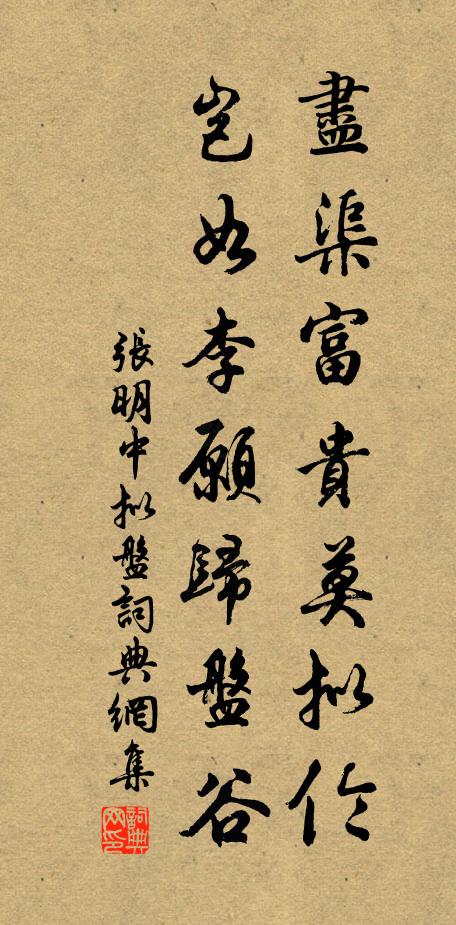 盡渠富貴莫拟伦
岂如李願歸盤谷
張明中拟盤詞典網集
詞典网印